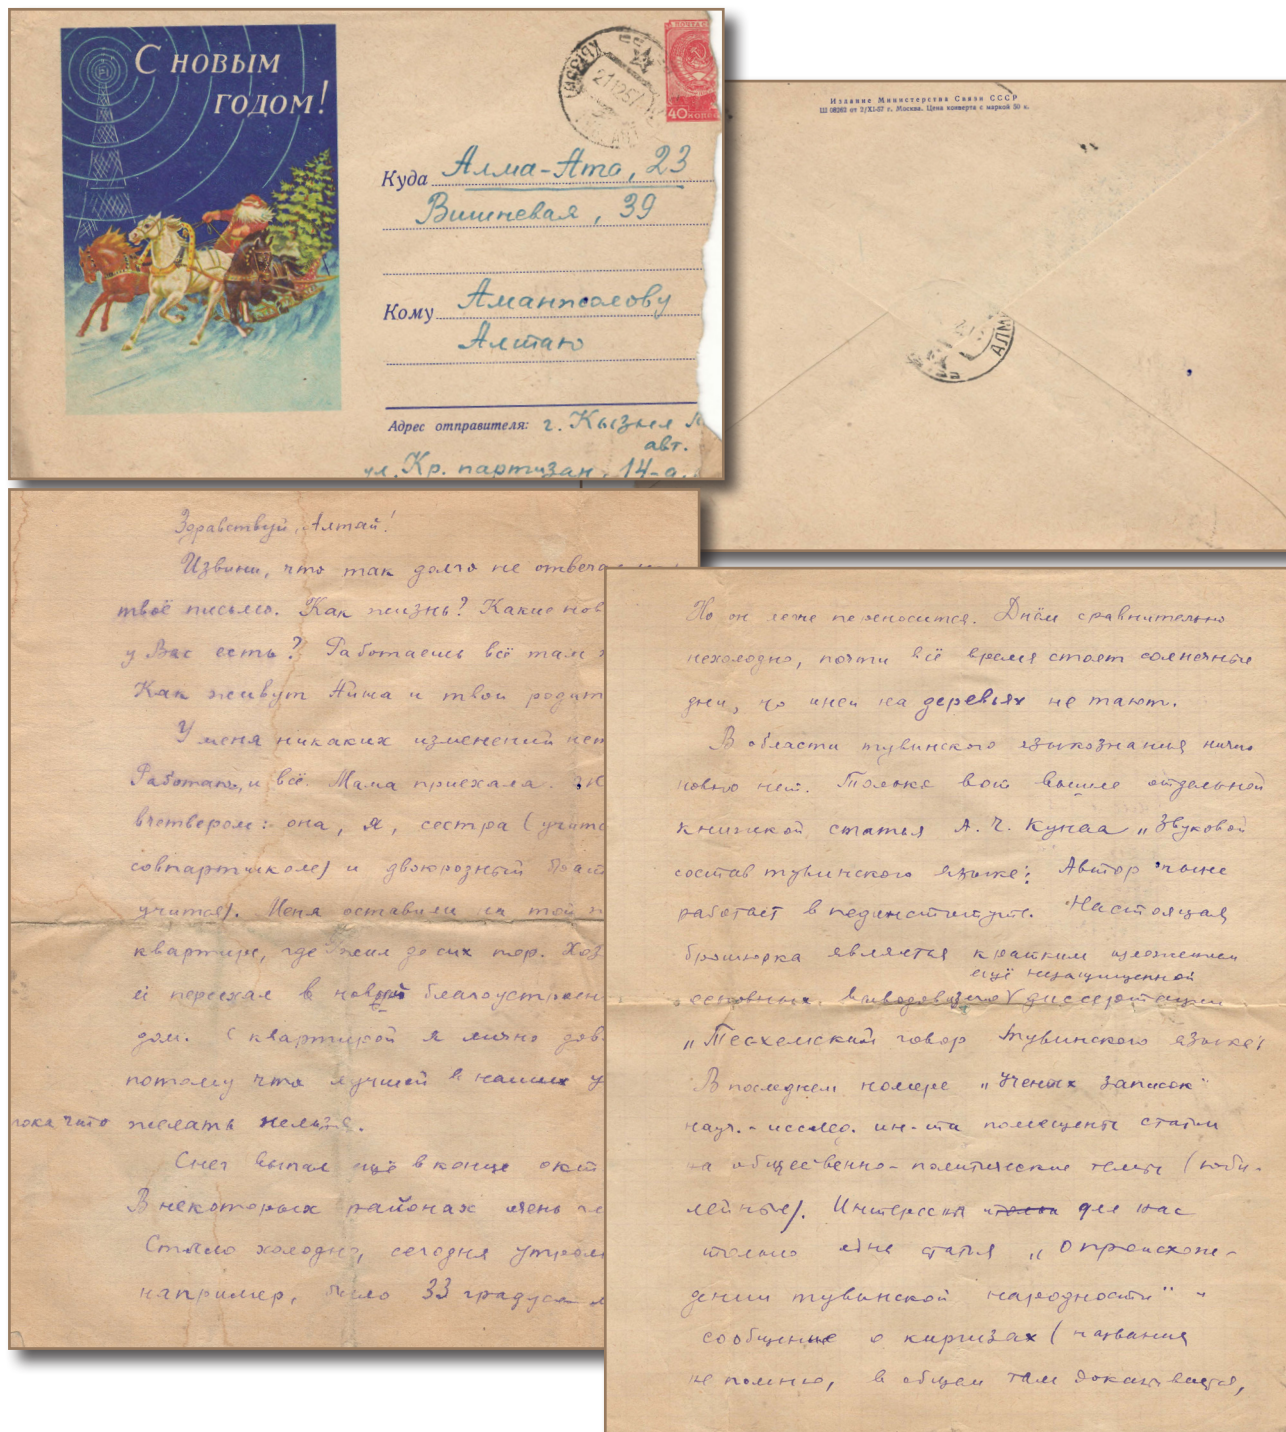 С НОВЫМ
ГОДОМ!
КЫЗЫЛ
21 12 57
40 КОПЕ
Куда Алма-Ата, 23
Вишневая, 39
Кому Аманжолову
Алтаю
Адрес отправителя: г. Кызыл
авт.
ул. Кр. партизан, 14-а.
Издание Министерства Связи СССР
Ш 08263 от 2/XI-57 г. Москва. Цена конверта с маркой 50 к.
АЛМ
Здравствуй, Алтай!
Извини, что так долго не отвеча
твоё письмо. Как жизнь? Какие нов
у Вас есть? Работаешь всё там
Как живут Айша и твои родит
У меня никаких изменений нет
Работаю, и всё. Мама приехала.
вчетвером: она, я, сестра (
совпартшколе) и двоюродный брат
учится). Меня оставили на той
квартире, где жил до сих пор. Хоз
переехал в новый благоустроен
дом. С квартирой я лично дов
потому что лучшей в наших у
пока что желать нельзя.
Снег выпал ещё в конце окт
В некоторых районах очень
Стало холодно, сегодня утром
например, было 33 градуса
Но он легче переносится. Днём сравнительно
нехолодно, почти всё время стоят солнечные
дни, но иней на деревьях не тают.
В области тувинского языкознания ничего
нового нет. Только вот вышла отдельной
книжкой статья А. Ч. Кунаа „Звуковой
состав тувинского языка". Автор ныне
работает в пединституте. Настоящая
брошюрка является кратким изложением
ещё незащищенной
основных выводов его диссертации
„Тесхемский говор тувинского языка"
В последнем номере „Ученых записок"
науч.-исслед. ин-та помещены статьи
на общественно-политические темы (юби-
лейные). Интересны для нас
только одна статья „О происхож-
дении тувинской народности" и
сообщение о киргизах (названия
не помню, в общем там доказывается,